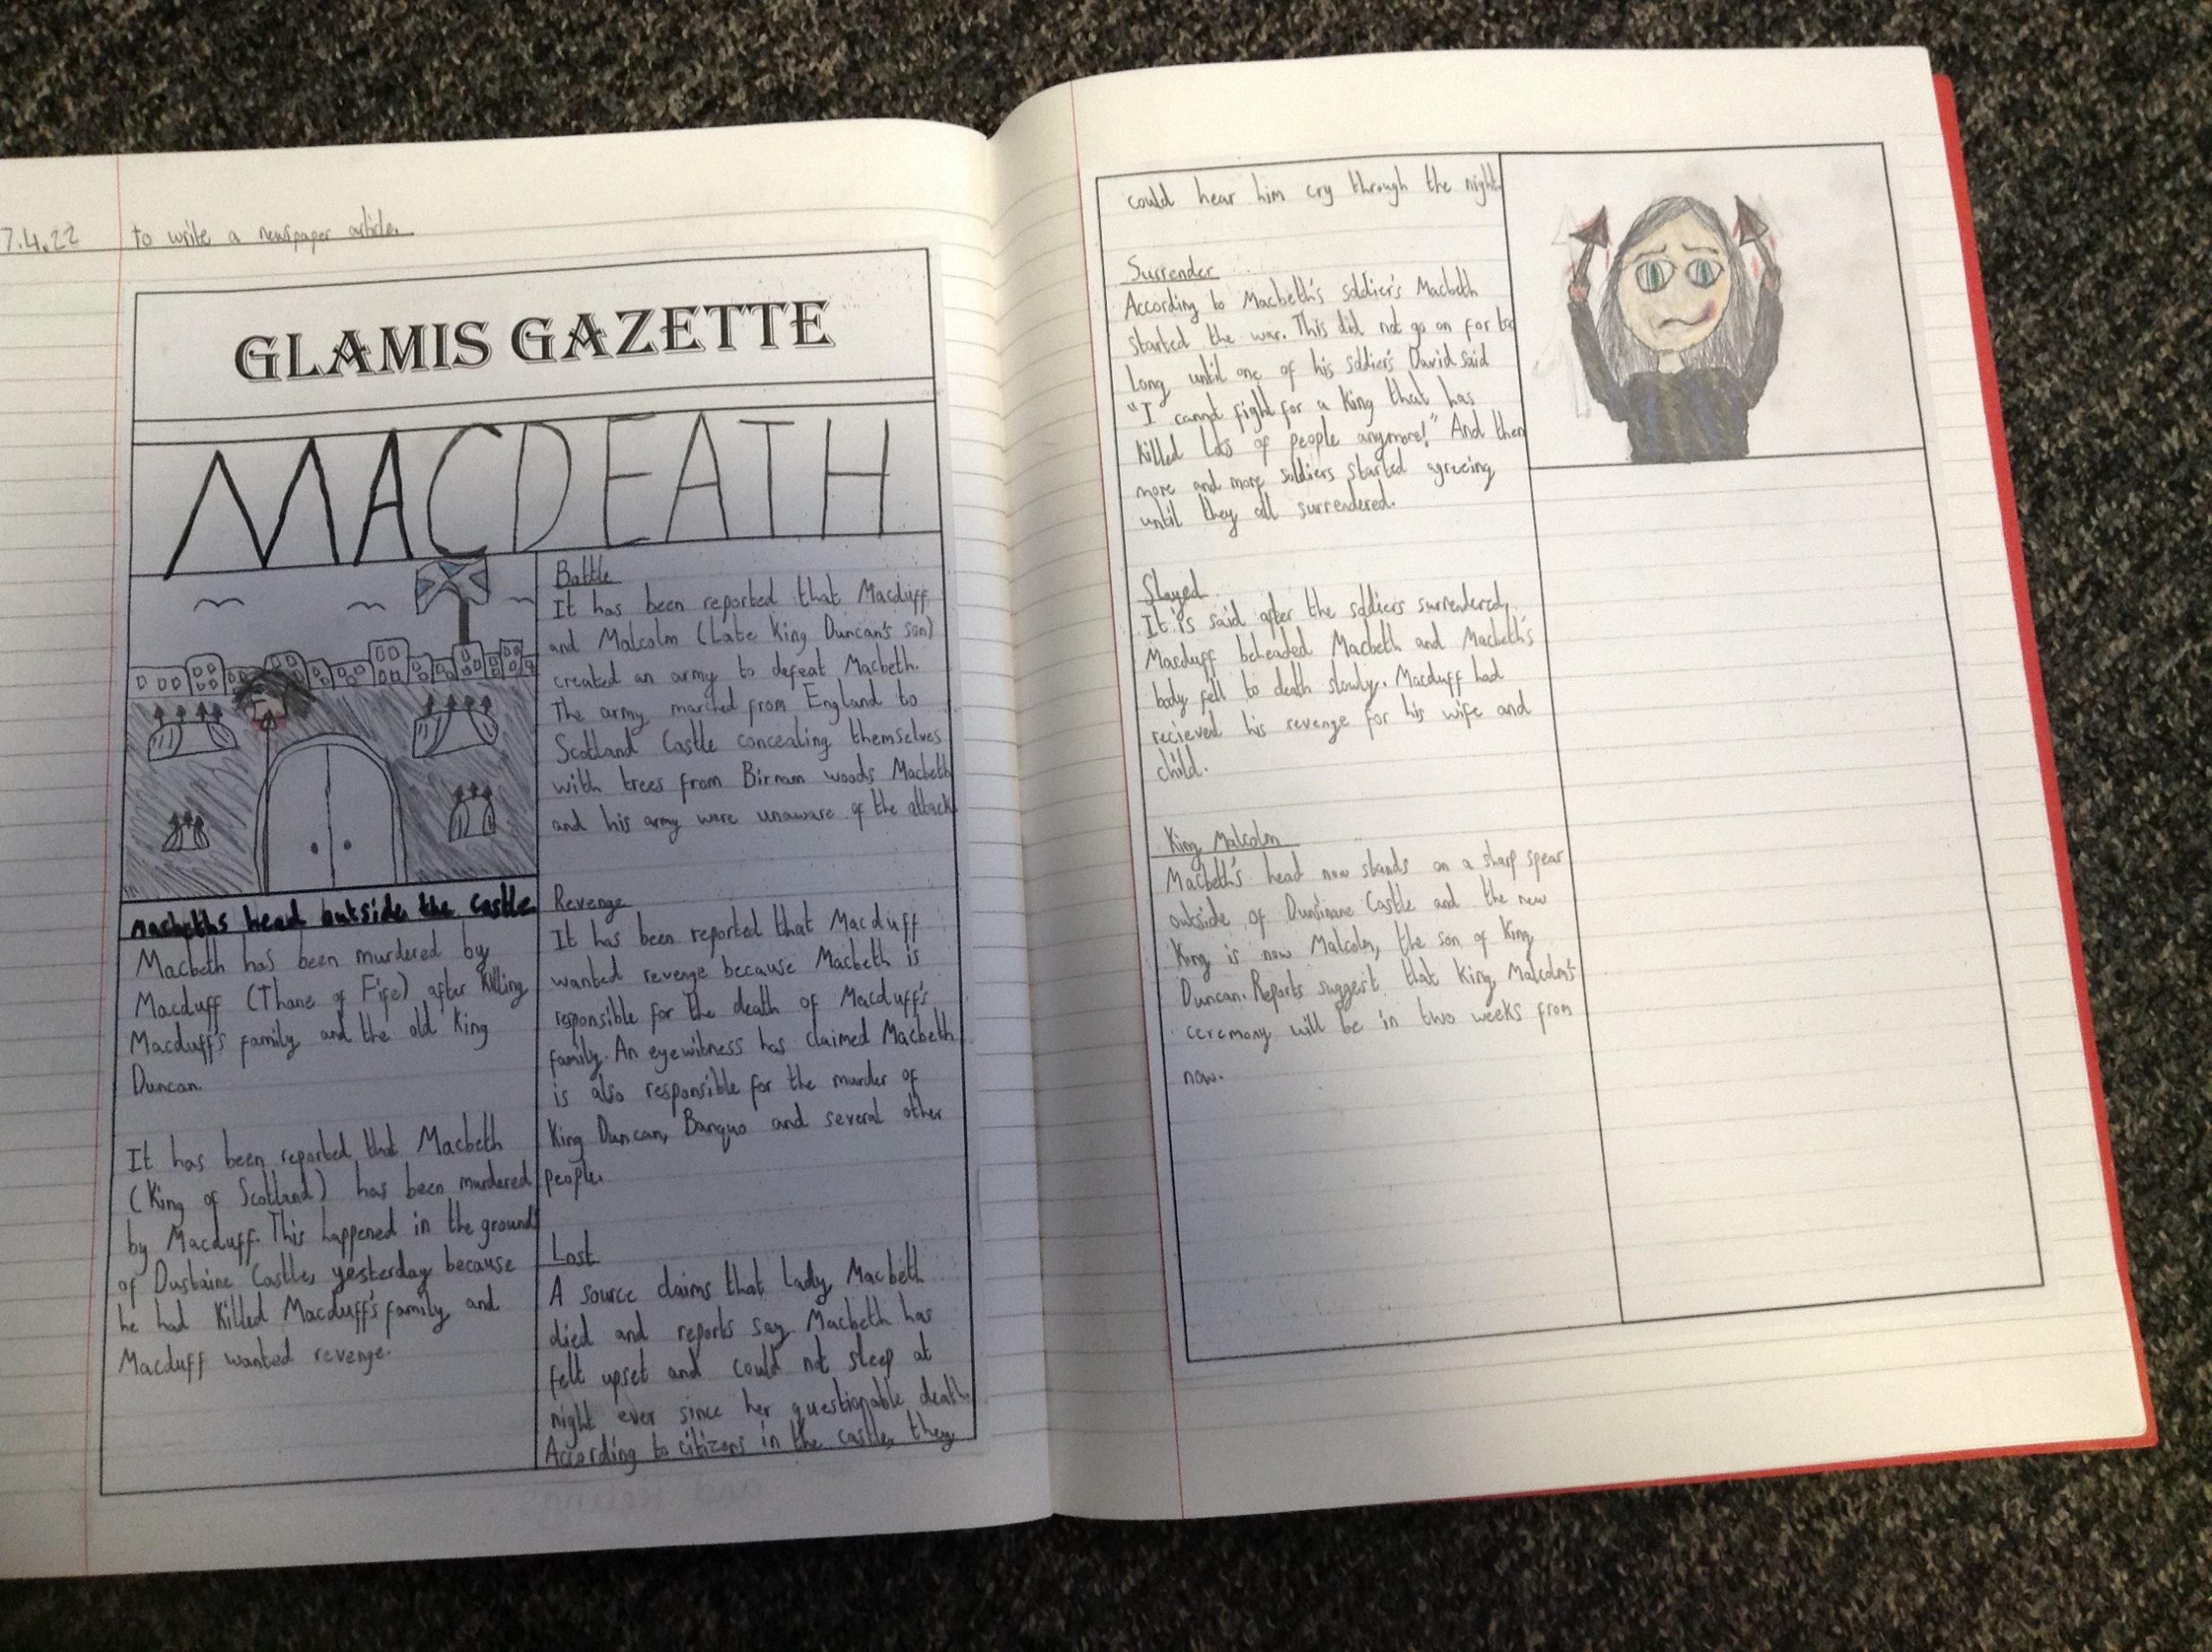 7.4.22 to write a newspaper article.
GLAMIS GAZETTE
MACDEATH
Macbeths head outside the Castle
Macbeth has been murdered by
Macduff (Thane of Fife) after killing
Macduff's family and the old King
Duncan.
It has been reported that Macbeth
(King of Scotland) has been murdered
by Macduff. This happened in the grounds
of Dusbaine Castle, yesterday because
he had killed Macduff's family and
Macduff wanted revenge.
Battle
It has been reported that Macduff
and Malcolm (Late King Duncan's son)
created an army to defeat Macbeth.
The army marched from England to
Scotland Castle concealing themselves
with trees from Birnam woods Macbeth
and his army were unaware of the attack
Revenge
It has been reported that Macduff
wanted revenge because Macbeth is
responsible for the death of Macduff's
family. An eyewitness has claimed Macbeth
is also responsible for the murder of
King Duncan, Banquo and several other
people.
Lost
A source claims that lady Macbeth
died and reports say Macbeth has
felt upset and could not sleep at
night ever since her questionable death.
According to citizens in the castle, they
could hear him cry through the night.
Surrender
According to Macbeth's soldier's Macbeth
started the war. This did not go on for too
long until one of his soldier's David said
"I cannot fight for a King that has
killed lots of people anymore!" And then
more and more soldiers started agreeing
until they all surrendered.
Slayed
It is said after the soldiers surrendered,
Macduff beheaded Macbeth and Macbeth's
body fell to death slowly. Macduff had
recieved his revenge for his wife and
child.
King Malcolm
Macbeth's head now stands on a sharp spear
outside of Dunsinane Castle and the new
King is now Malcolm, the son of King
Duncan. Reports suggest that King Malcolm's
ceremony will be in two weeks from
now.